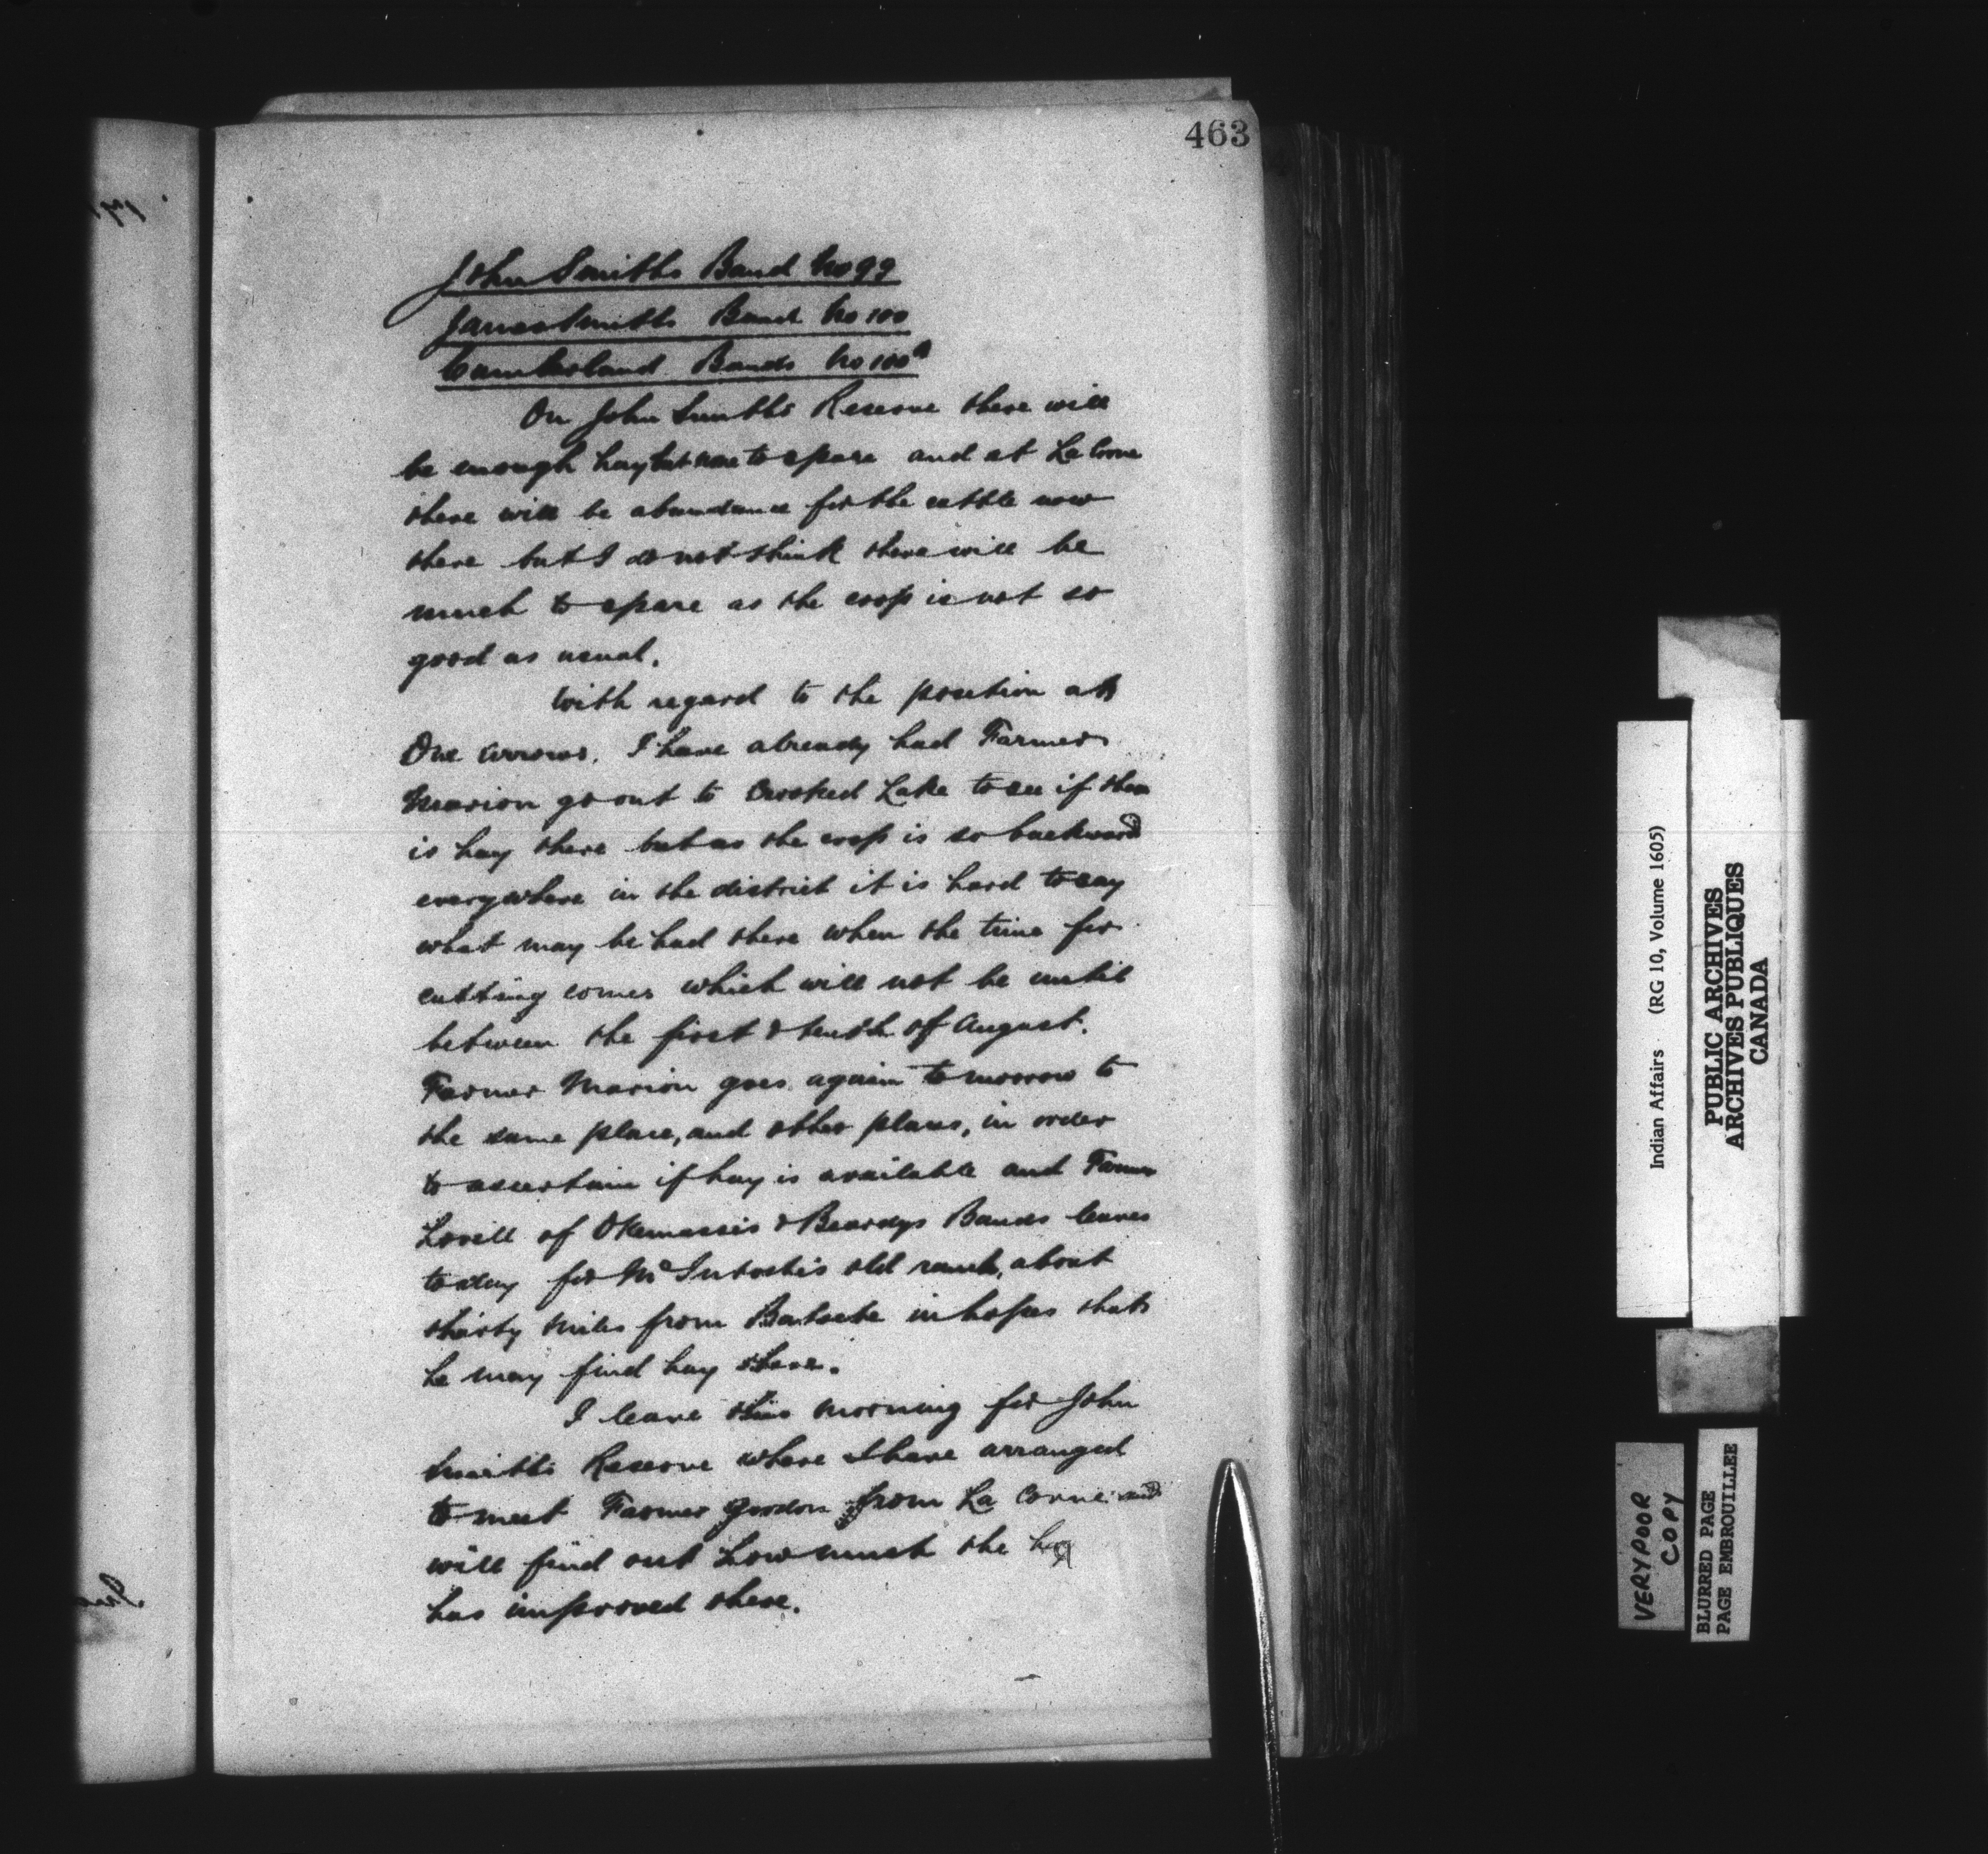 463
John Smiths Band No 99
James Smiths Band No 100
Cumberland Bands No 100a
On John Smiths Reserve there will
be enough hay but none to spare and at La Corne
there will be abundance for the cattle now
there but I do not think there will be
much to spare as the crop is not so
good as usual.
With regard to the position at
One Arrows. I have already had Farmer
Marion go out to Crooked Lake to see if there
is hay there but as the crop is so backward
everywhere in the district it is hard to say
what may be had there when the time for
cutting comes which will not be until
between the first & tenth of August.
Farmer Marion goes again tomorrow to
the same place, and other places, in order
to ascertain if hay is available and Farmer
Lovell of Okemassis & Beardys Bands leaves
today for McIntosh's old ranch, about
thirty miles from Batoche in hopes that
he may find hay there.
I leave this morning for John
Smiths Reserve where I have arranged
to meet Farmer Gordon from La Corne and
will find out how much the hay
has improved there.
Indian Affairs (RG 10, Volume 1605)
PUBLIC ARCHIVES
ARCHIVES PUBLIQUES
CANADA
VERY POOR
COPY
BLURRED PAGE
PAGE EMBROUILLEE